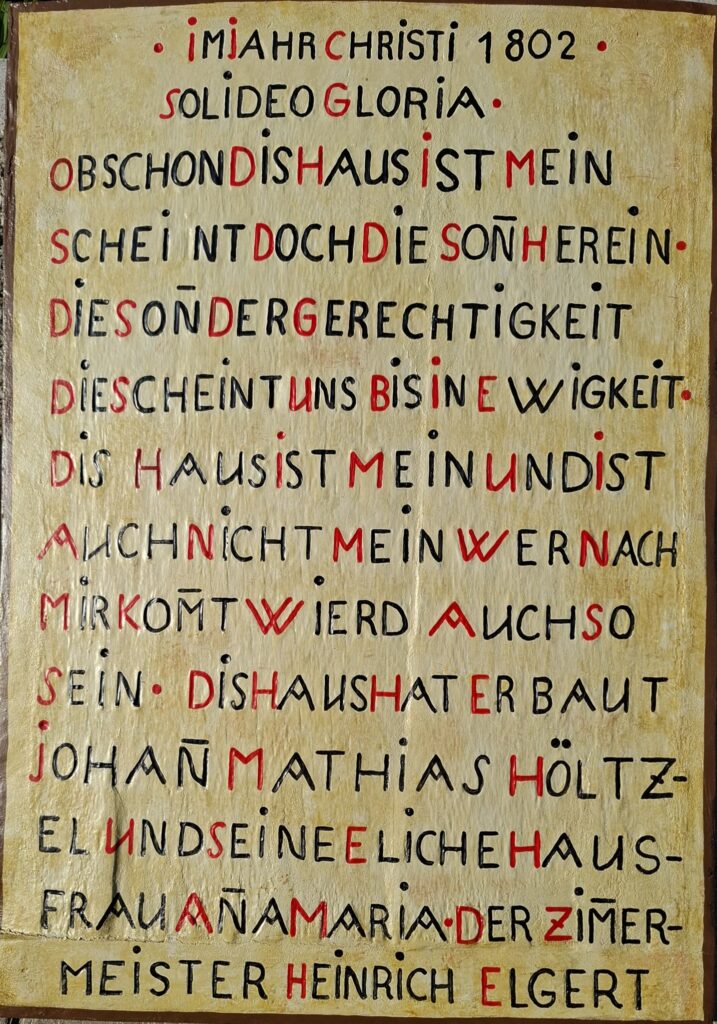 · iMJAHR CHRiSTi 1802 ·
SOLiDEO GLORiA·
OBSCHON DiS HAUS iST MEiN
SCHEiNT DOCH DiE SOÑ HEREiN·
DiE SOÑ DER GERECHTiGKEiT
DiE SCHEiNT UNS BiS iN EWiGKEiT·
DiS HAUS iST MEiN UND iST
AUCH NiCHT MEiN WER NACH
MiR KOM̃T WiERD AUCH SO
SEiN· DiS HAUS HAT ERBAUT
JOHAÑ MATHiAS HÖLTZ-
EL UND SEiNE ELiCHE HAUS-
FRAU AÑA MARiA· DER ZiM̃ER-
MEiSTER HEiNRiCH ELGERT